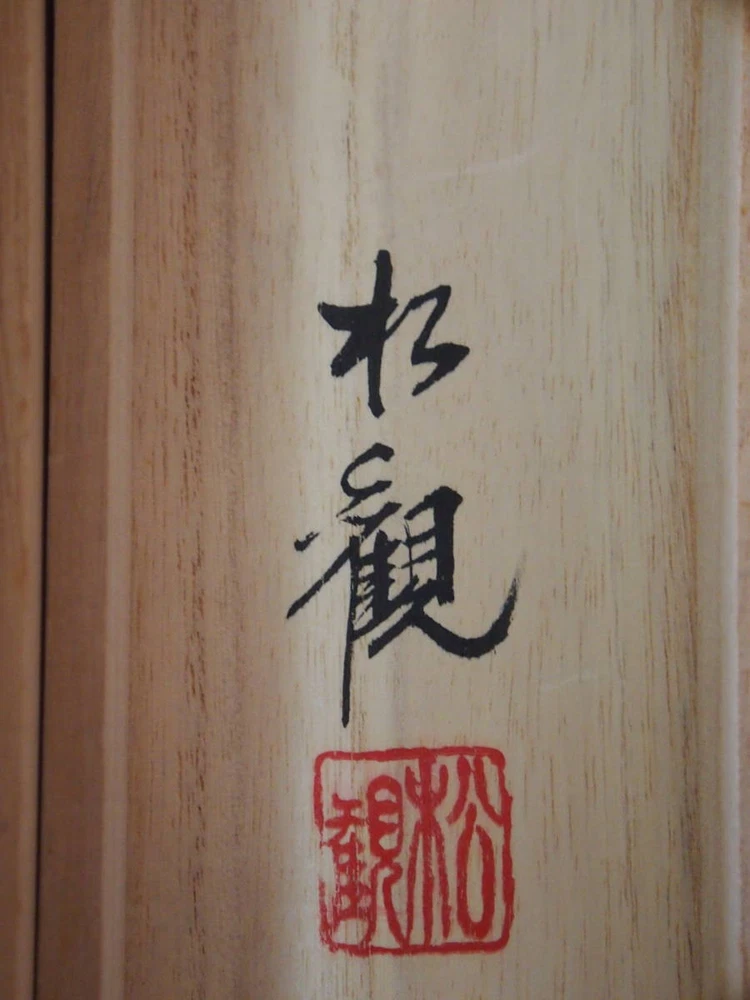 松
觀
松
觀